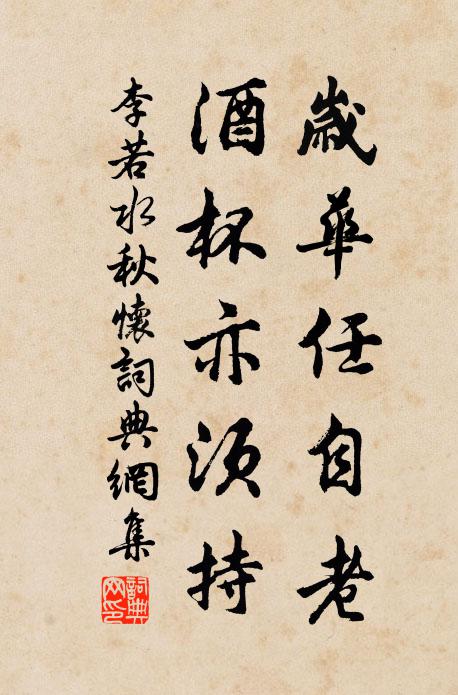 歲華任自老
酒杯亦須持
李若水秋懷詞典網集
詞典網印